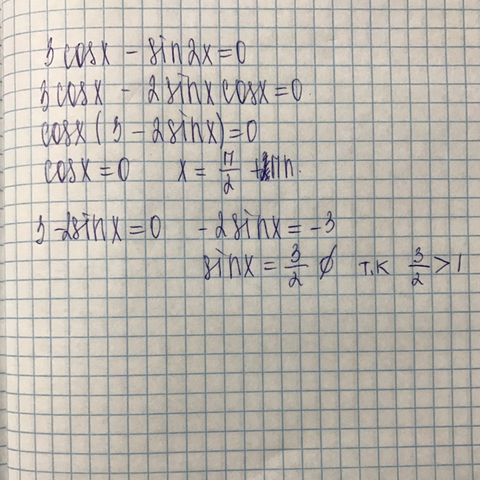 3cosx - sin2x=0
3cosx - 2sinxcosx=0
cosx(3 - 2sinx)=0
cosx=0 x= π/2 + πn.
3-2sinx=0 -2sinx=-3
sinx= 3/2 ∅ т.к 3/2 >1